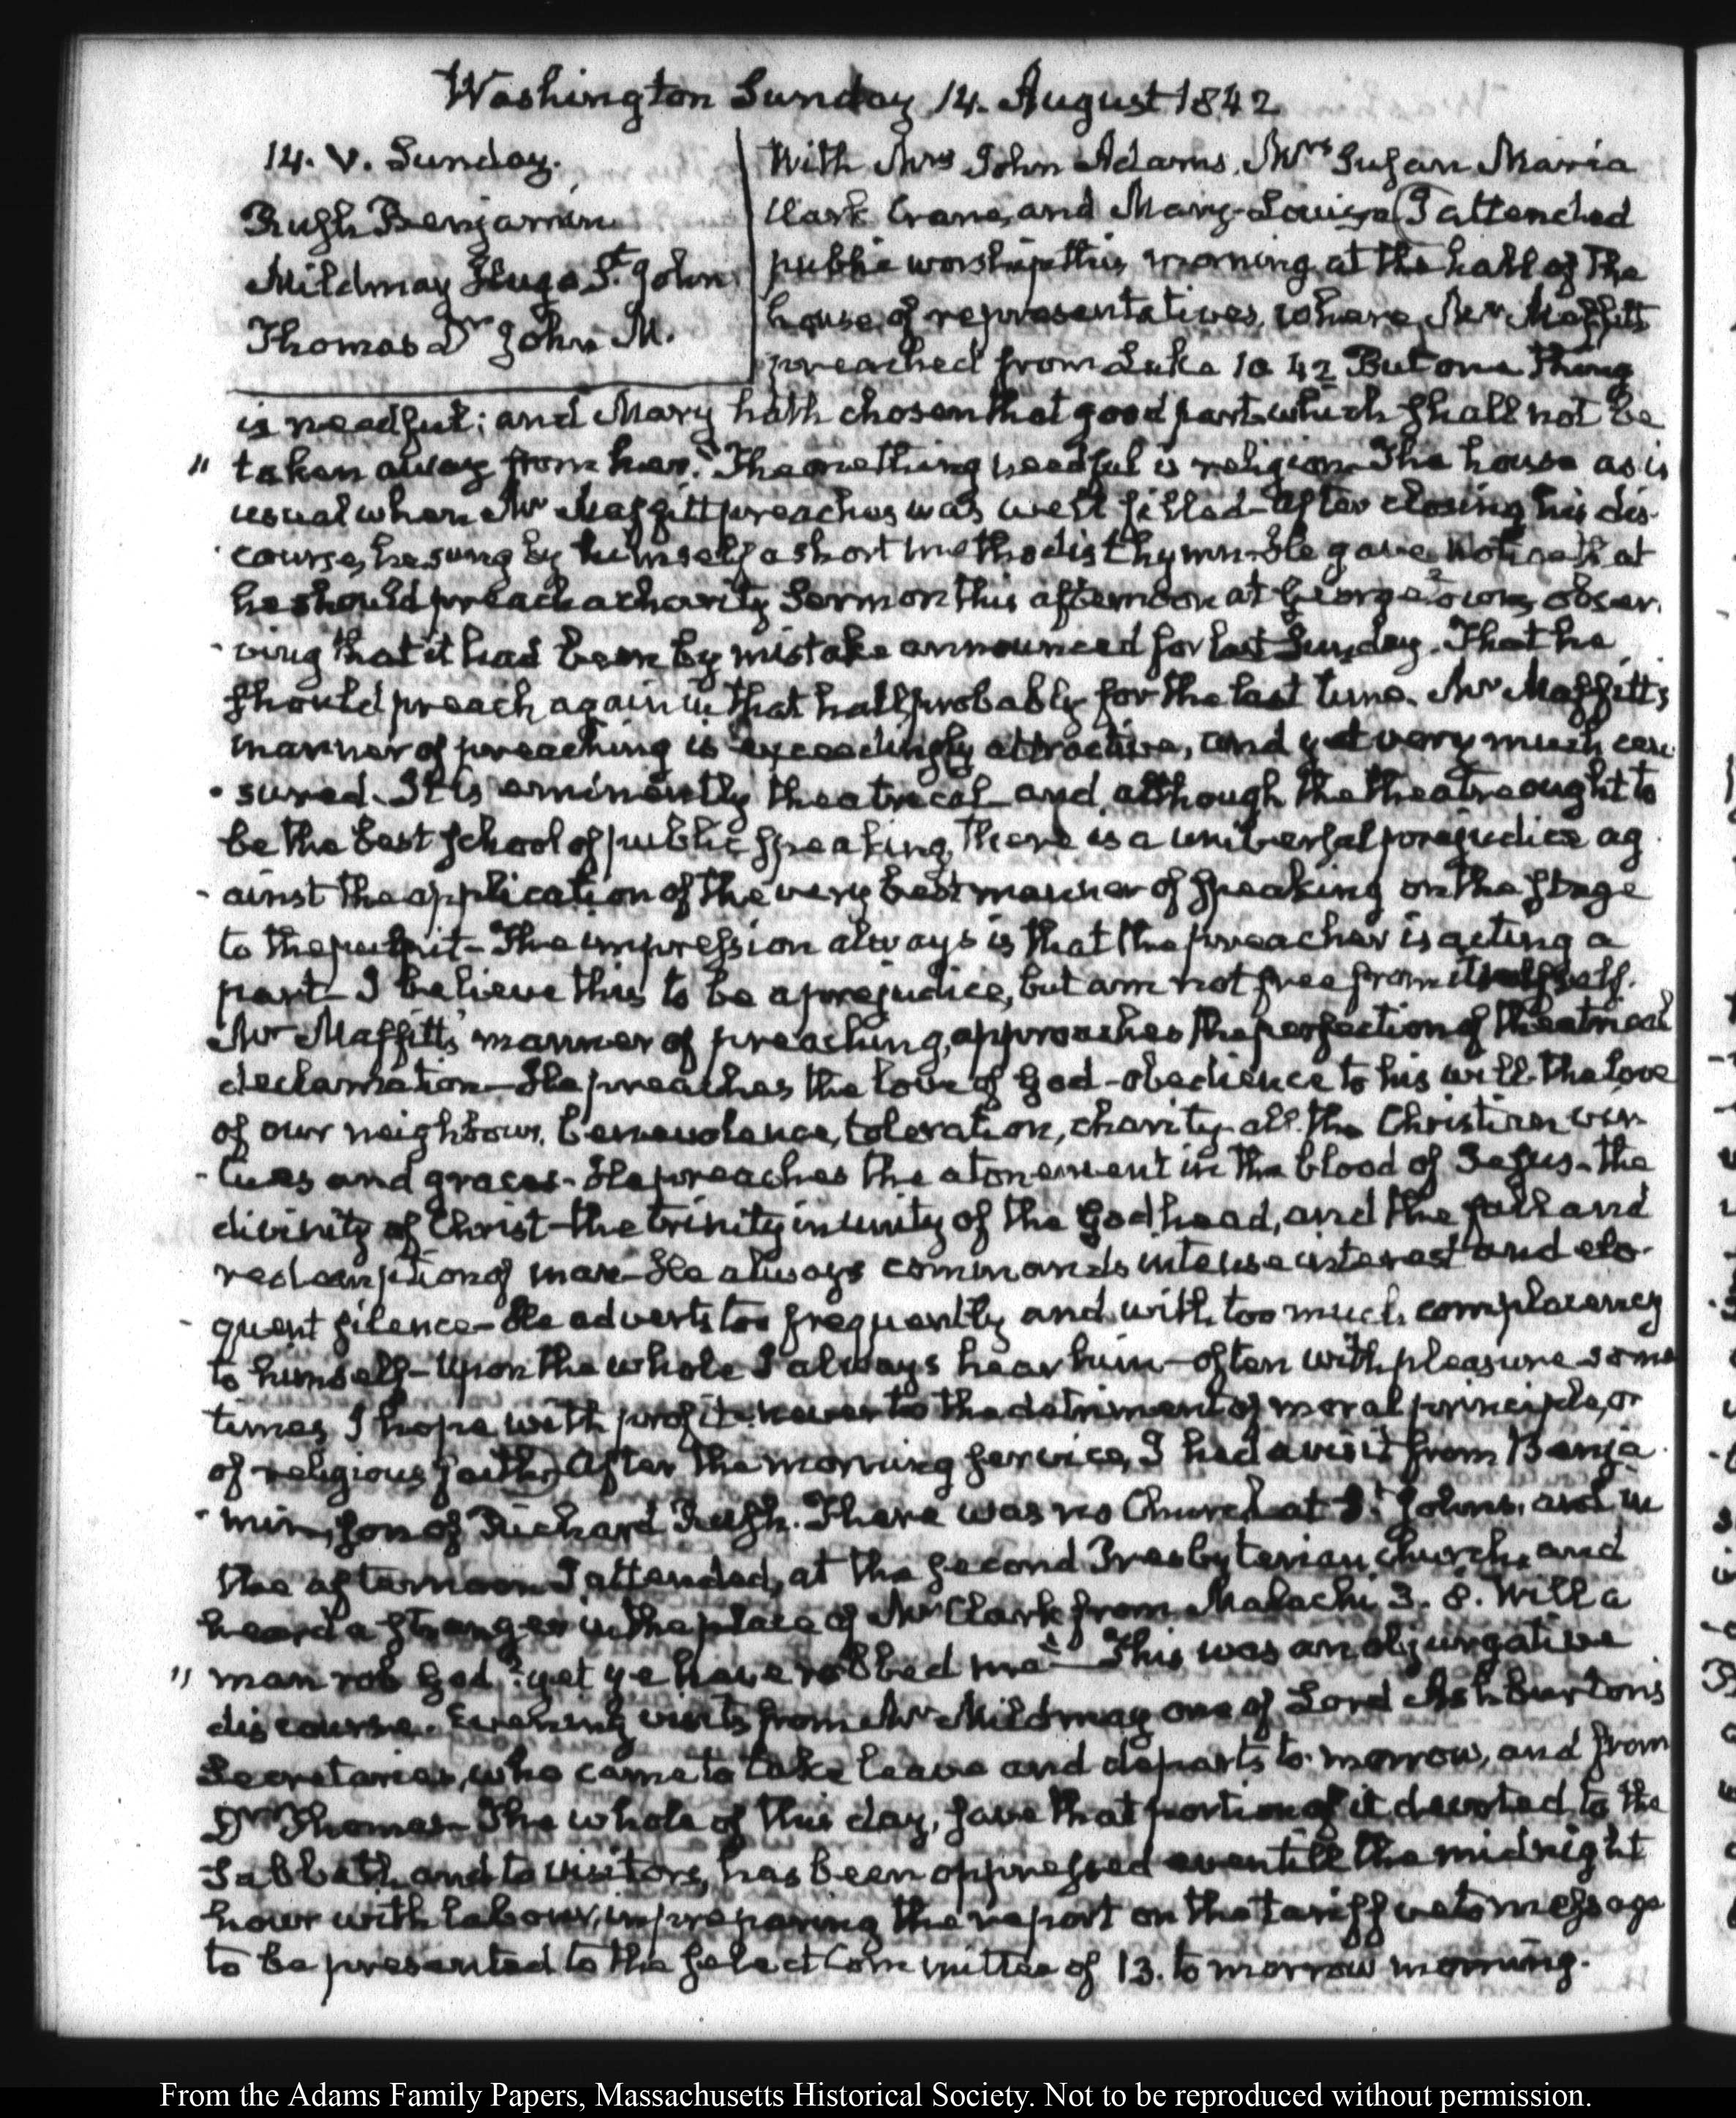 Washington Sunday 14. August 1842
14. V. Sunday.
Rush Benjamin
Mildmay Hugo St. John
Thomas Dr John M.
With Mrs John Adams, Mrs Susan Maria
Clark Crane, and Mary-Louisa I attended
public worship this morning at the hall of the
house of representatives, where Mr Maffitt
preached from Luke 10 42 But one thing
is needful: and Mary hath chosen that good part which shall not be
" taken away from her." The one thing needful is religion. The house as is
usual when Mr Maffitt preaches was well filled- After closing his dis-
course, he sung by himself a short methodist hymn- He gave notice that
he should preach a charity Sermon this afternoon at Georgetown, obser-
- ving that it had been by mistake announced for last Sunday. That he
should preach again in that hall, probably for the last time. Mr Maffitt's
manner of preaching is exceedingly attractive, and yet very much cen-
- sured. It is eminently theatrical- and although the theatre ought to
be the best school of public speaking, there is a universal prejudice ag
- ainst the application of the very best manner of speaking on the stage
to the pulpit- The impression always is that the preacher is acting a
part- I believe this to be a prejudice, but am not free from it
Mr Maffitt's manner of preaching, approaches the perfection of theatrical
declamation- He preaches the love of God- obedience to his will- the love
of our neighbour, benevolence, toleration, charity- all the Christian vir-
- tues and graces- He preaches the atonement in the blood of Jesus- the
divinity of Christ- the trinity in unity of the Godhead, and the fall and
redemption of man- He always commands intense interest and elo-
- quent silence- He adverts too frequently and with too much complacency
to himself- Upon the whole I always hear him- often with pleasure- some
times, I hope with profit- never to the detriment of moral principle, or
of religious faith. After the morning service, I had a visit from Benja
- min, son of Richard Rush. There was no Church at St. Johns, and in
the afternoon I attended, at the second Presbyterian church, and
heard a stranger in the place of Mr Clark from Malachi 3. 8. Will a
" man rob God? yet ye have robbed me"- This was an objurgative
discourse. Evening visits from Mr Mildmay one of Lord Ashburton's
Secretaries, who came to take leave and departs to-morrow, and from
Dr Thomas- The whole of this day, save that portion of it devoted to the
Sabbath and to visitors, has been oppressed even till the midnight
hour with labour, in preparing the report on the tariff veto message
to be presented to the select Committee of 13. to morrow morning.
From the Adams Family Papers, Massachusetts Historical Society. Not to be reproduced without permission.